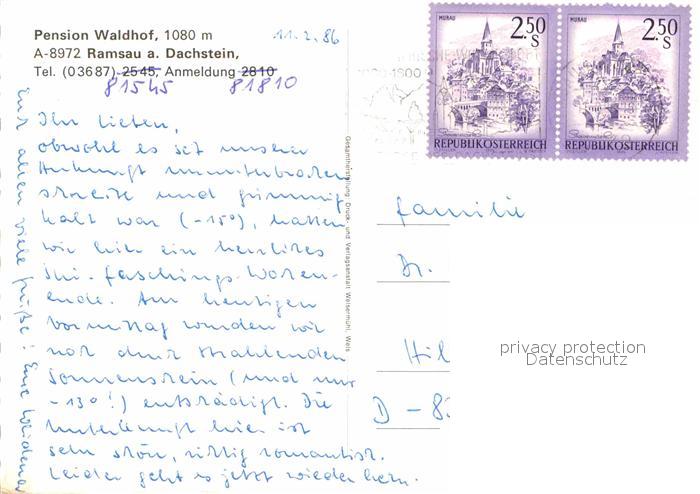 Pension Waldhof, 1080 m
11.2.86
A-8972 Ramsau a. Dachstein,
Tel. (03687) 2545, Anmeldung 2810
81545 81810
Ihr Lieben,
obwohl es seit unserer
Ankunft ununterbrochen
schneite und grimmig
kalt war (-15°), hatten
wir hier ein herrliches
Ski-Faschings-Wochen-
ende. Am heutigen
Vormittag wurden wir
noch durch strahlenden
Sonnenschein (und nur
-13°!) entschädigt. Die
Unterkunft hier ist
sehr schön, richtig romantisch.
Leider geht es jetzt wieder heim.
Euch allen viele Grüße! Eure
Gesamtherstellung Druck- und Verlagsanstalt Welsermühl, Wels
MURAU
2.50 S
REPUBLIK ÖSTERREICH
MURAU
2.50 S
REPUBLIK ÖSTERREICH
Familie
Dr.
Hil
D - 8
privacy protection
Datenschutz